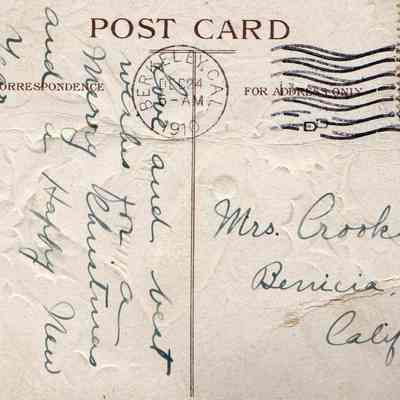 POST CARD
CORRESPONDENCE
FOR ADDRESS ONLY
BERKELEY, CAL.
DEC 24
6-AM
1910
D
Love and best
wishes for a
Merry Christmas
and a Happy New
Year
Mrs. Crook
Benicia,
Calif